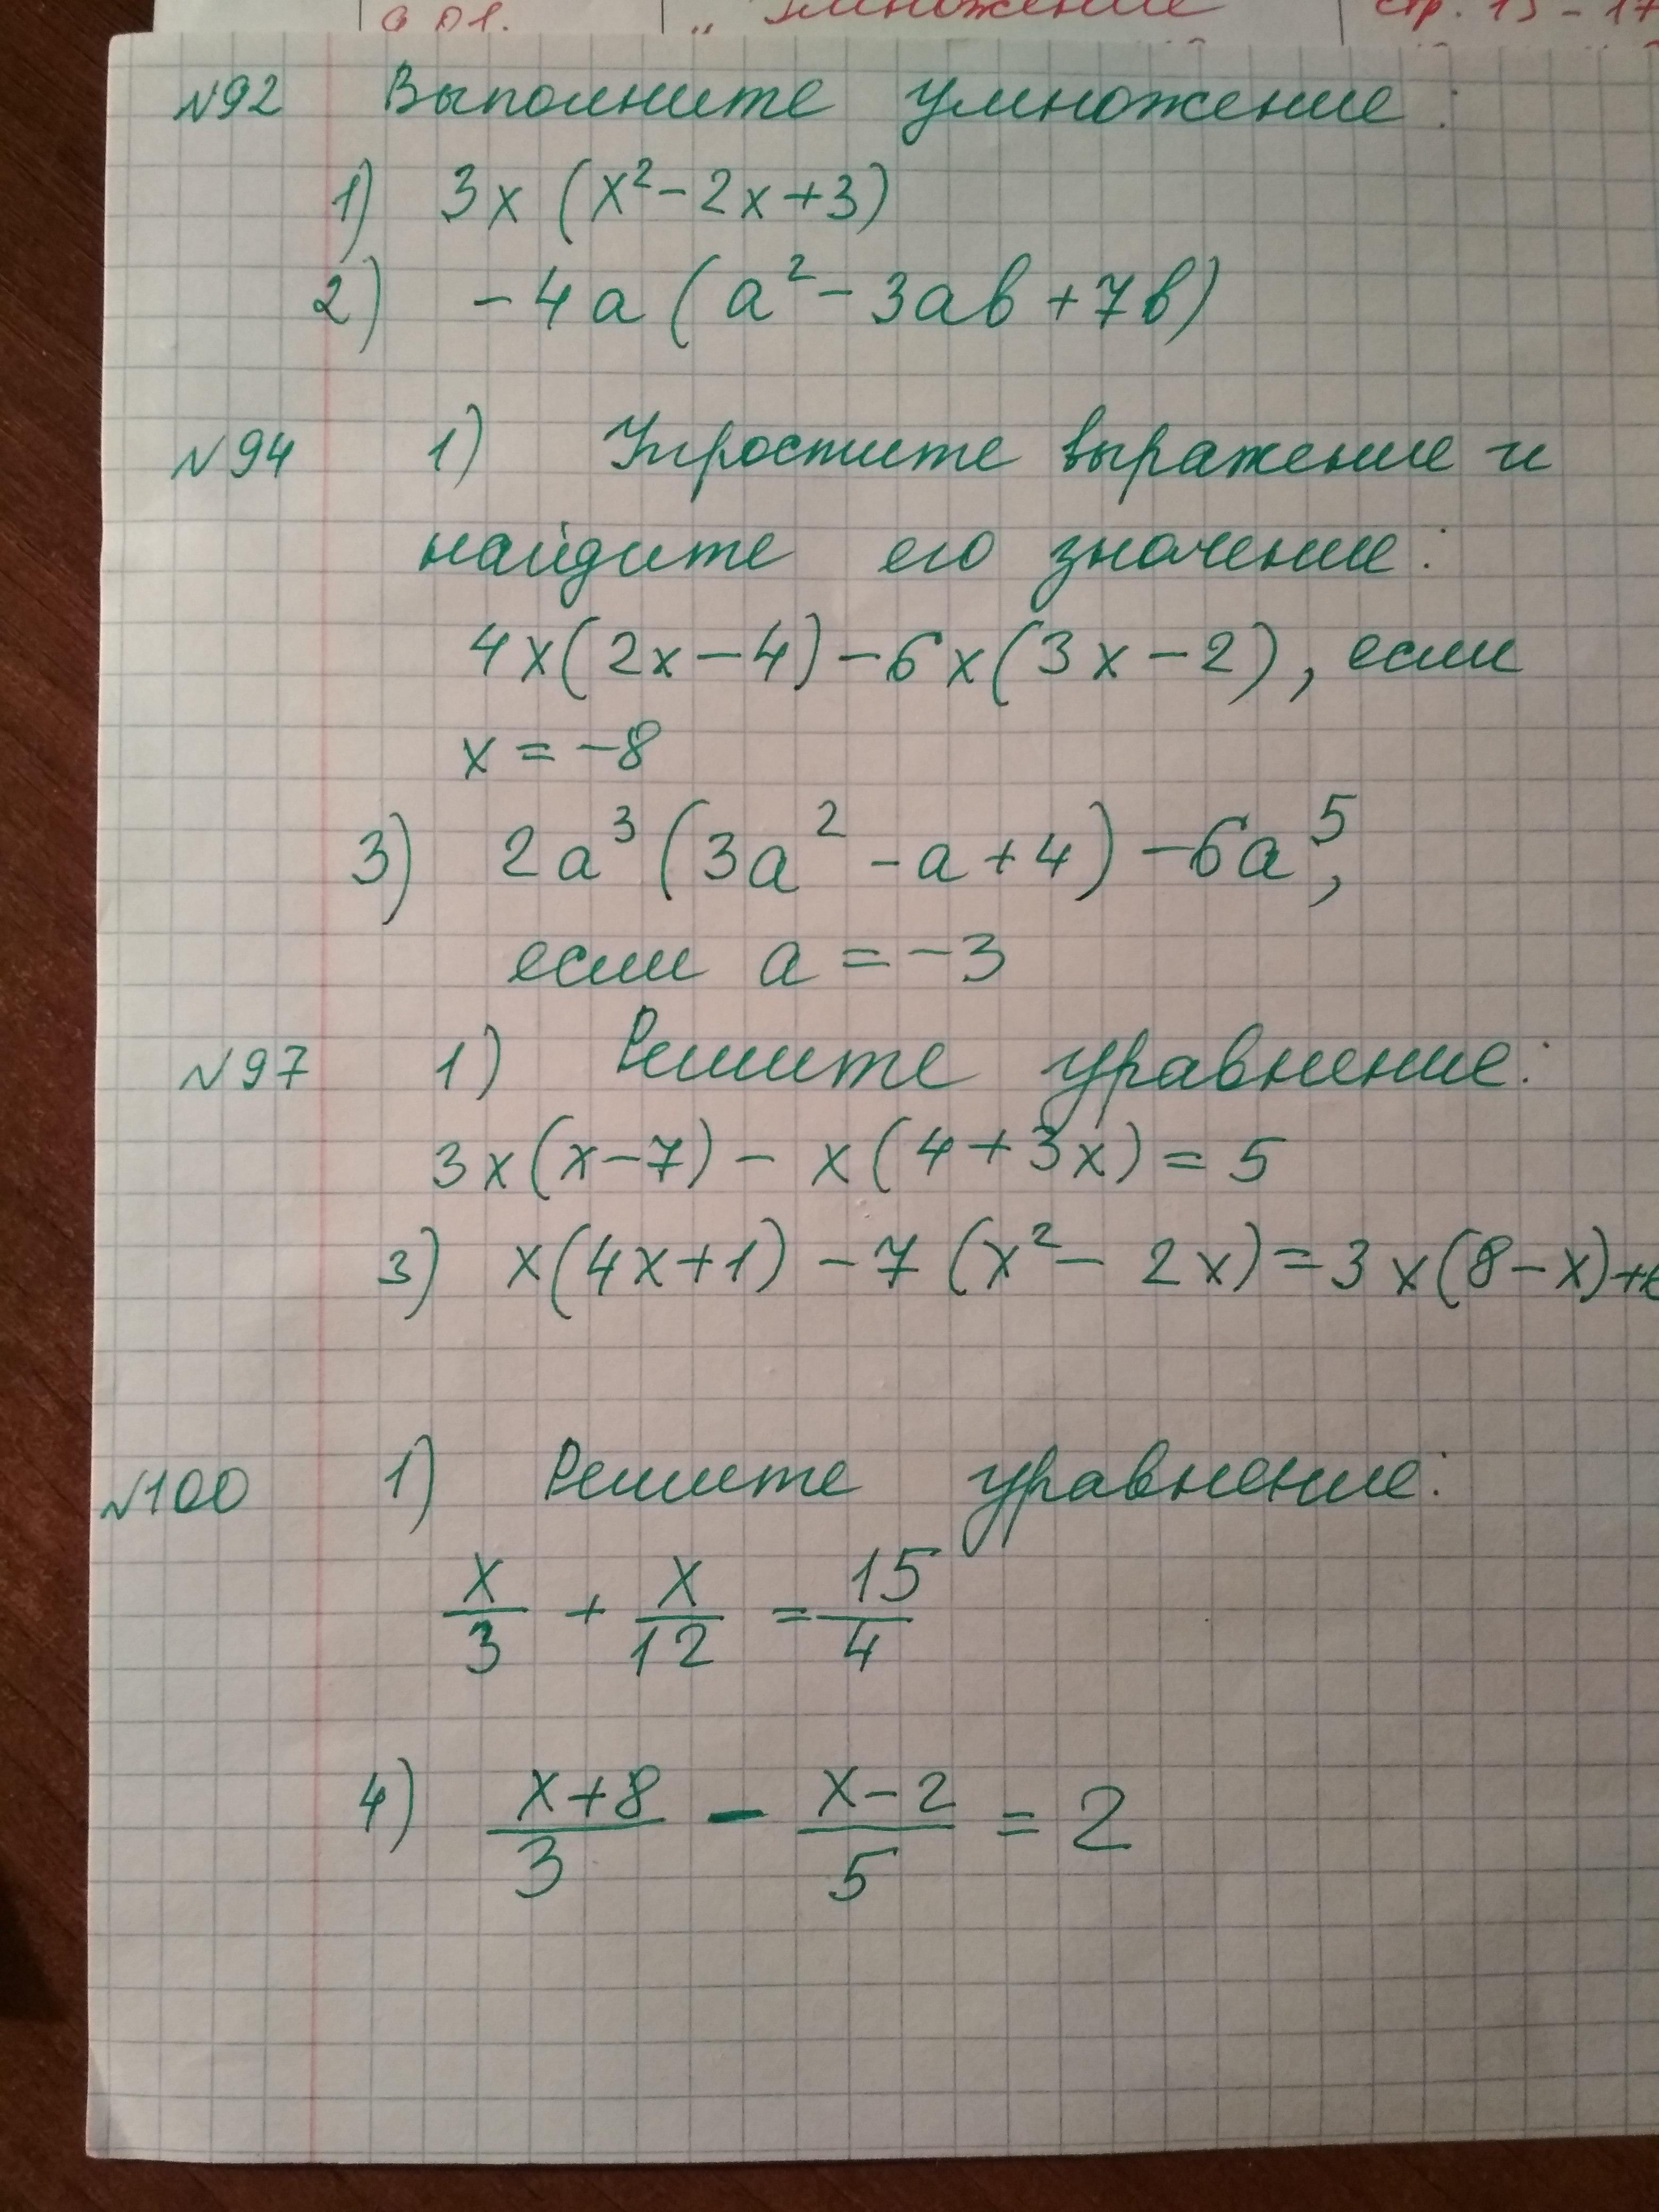 с 01. „ Умножение стр. 15-17
№92 Выполните умножение:
1) 3x (x²-2x+3)
2) -4a (a²-3ab+7b)
№94 1) Упростите выражение и
найдите его значение:
4x(2x-4)-6x(3x-2), если
x = -8
3) 2a³(3a²-a+4)-6a⁵,
если a = -3
№97 1) Решите уравнение:
3x(x-7)- x(4+3x)=5
3) x(4x+1)-7(x²- 2x)=3x(8-x)+
№100 1) Решите уравнение:
x/3 + x/12 = 15/4
4) x+8/3 - x-2/5 = 2